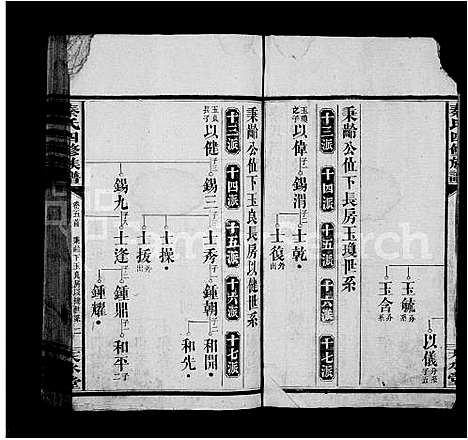 秦氏四修族譜
玉毓
玉含
以儀
秉齡公位下長房玉瓊世系
十三派 十四派 十五派 十六派 十七派
以偉
錫渭
士乾
士復
秉齡公位下玉良長房以健世系
十三派 十四派 十五派 十六派 十七派
玉良長子
以健
錫三
士秀
鍾朝
和開
和先
錫九
士逢
鍾鼎
和平
鍾耀
士操
士援
秦氏四修族譜
卷五首
天水堂